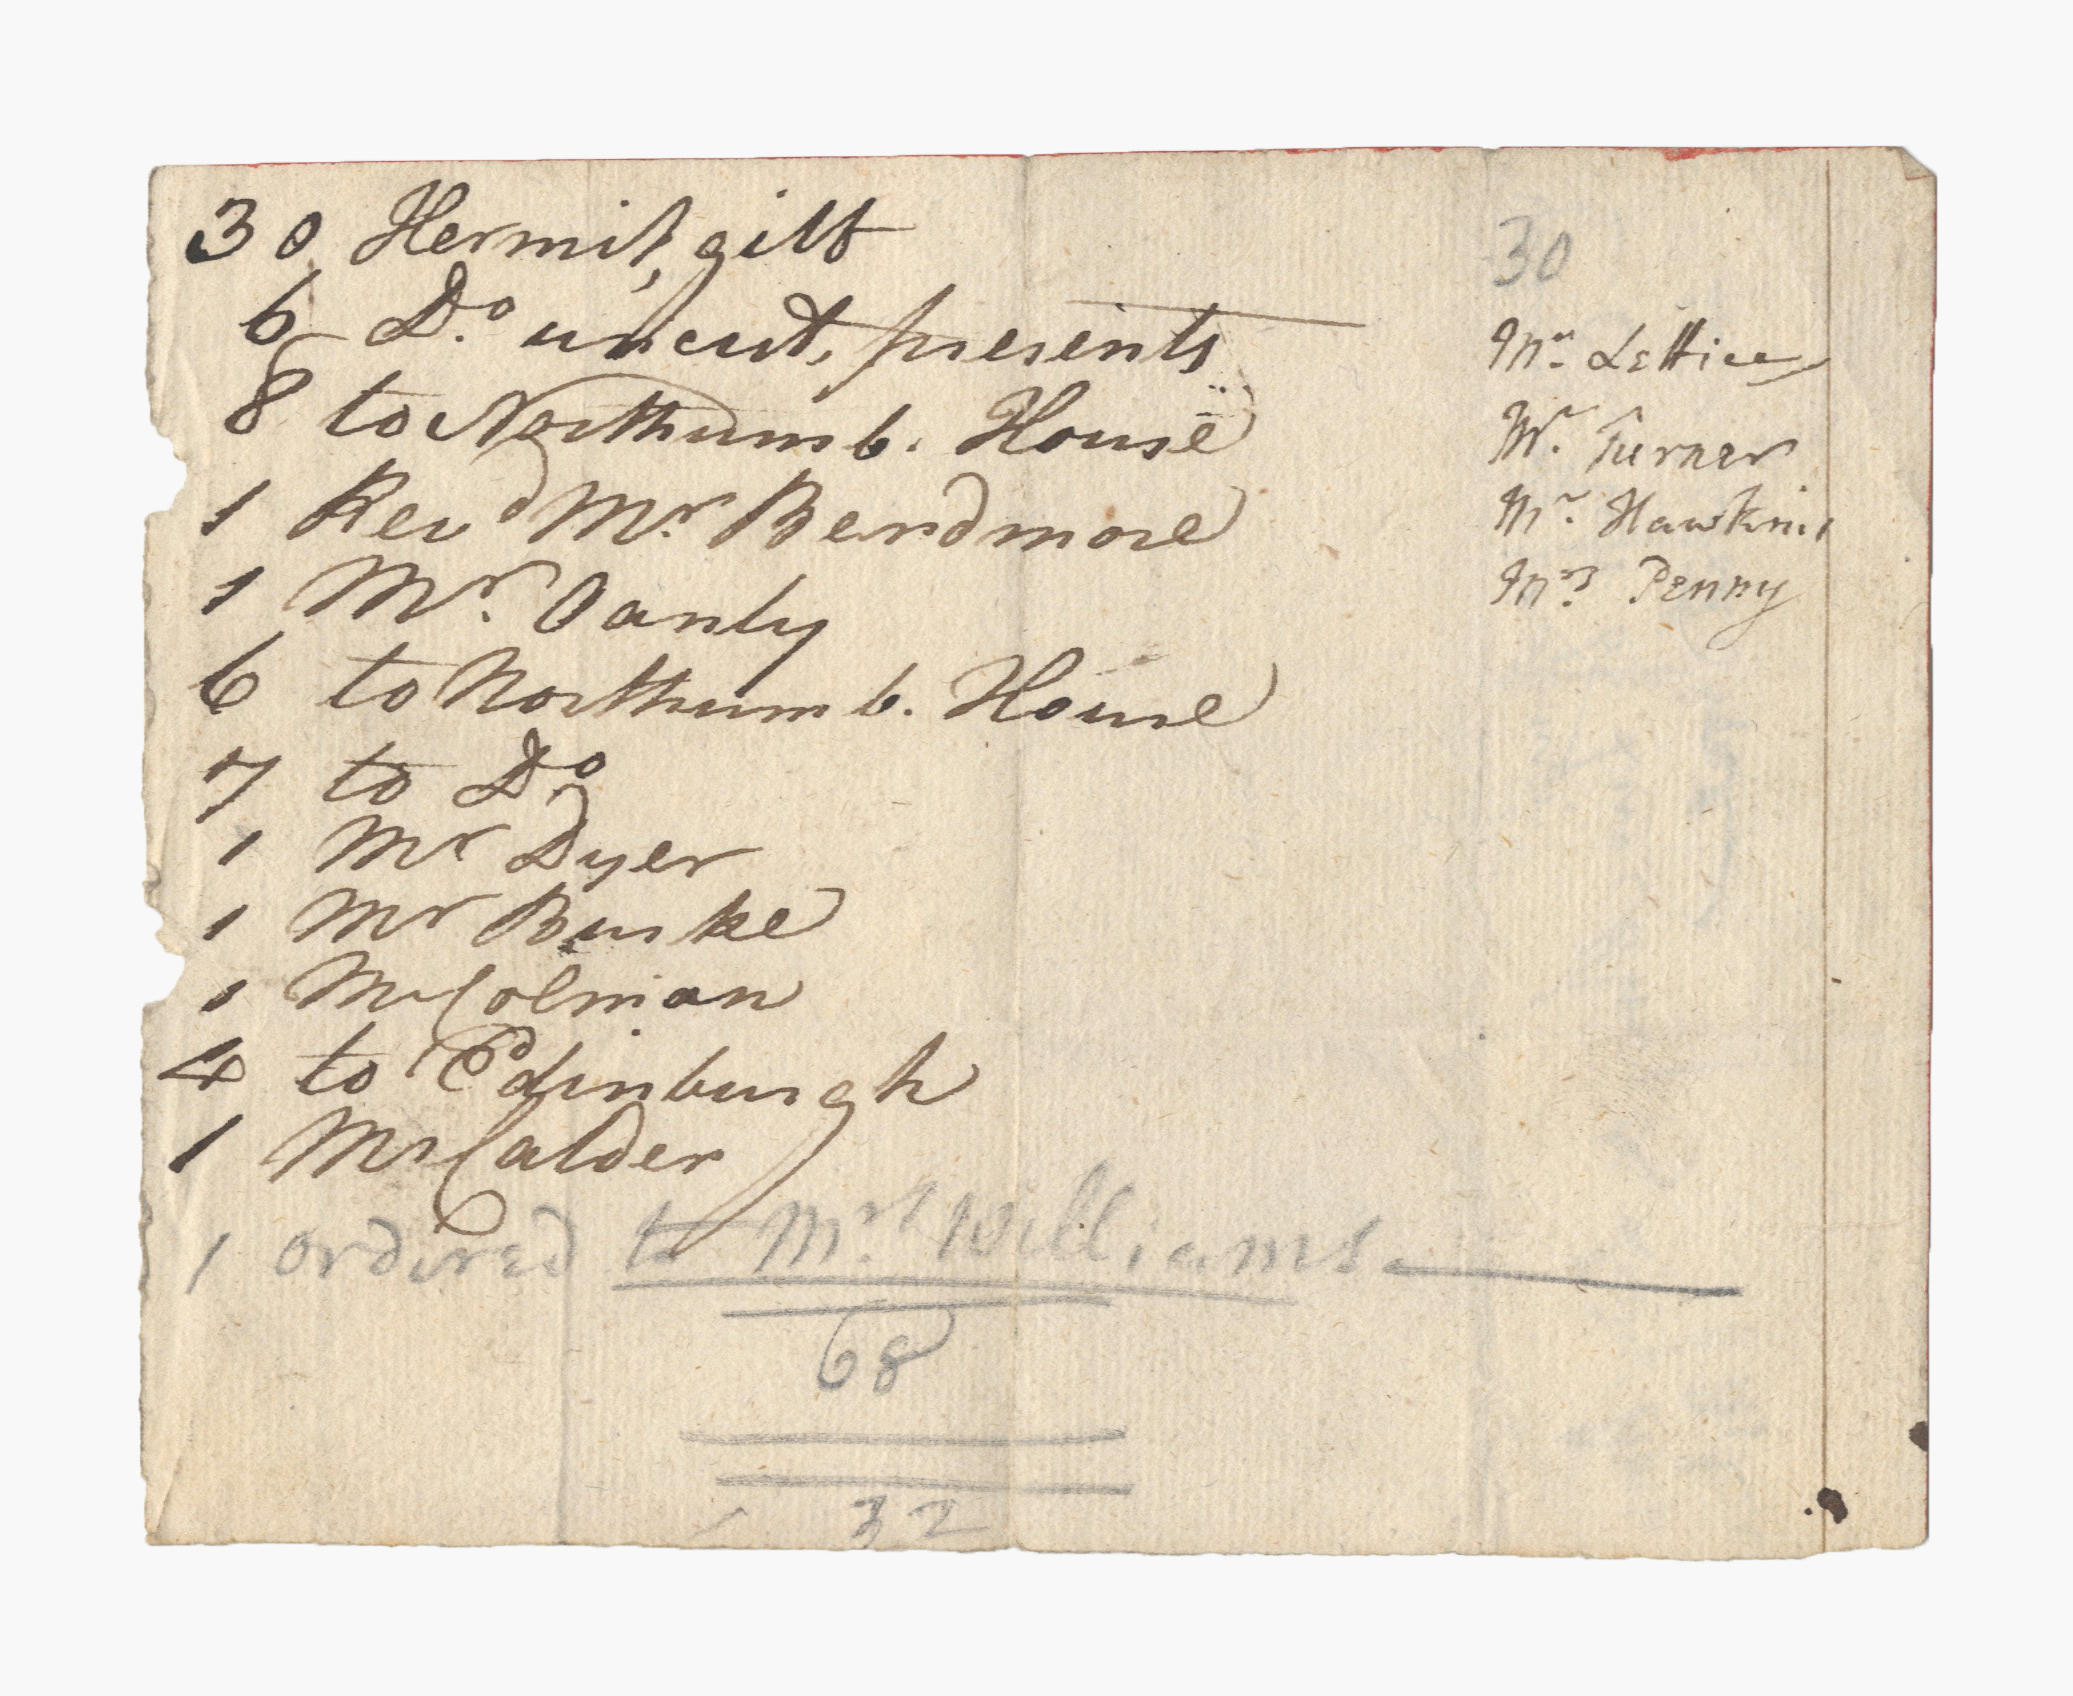 30 Hermit, gilt
6 Do. uncut, presents
8 to Northumb. House
1 Revd Mr. Berdmore
1 Mr. Oanly
6 to Northumb. House
7 to Do
1 Mr Dyer
1 Mr Burke
1 Mr Colman
4 to Edinburgh
1 Mr Calder
1 ordered to Mrs. Williams.
68
32
30
Mr. Lettice
Mr. Turner
Mr. Hawkins
Mrs. Penny